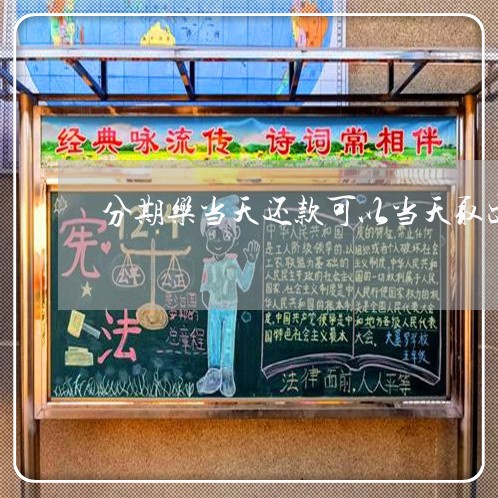 经典咏流传 诗词常相伴
分期樂当天还款可以当天取
12.4
宪法
公平 公正
总章程
中华人民共和国
是工人阶级领导的,以
工农联盟为基础的
人民民主专政的社会主义
国家,社会主义制度是中
华人民共和国的根本制
度,中国共产党领导是中
国特色社会主义最本
质的特征,禁止任何
组织或者个人破坏社会
主义制度,中华人民共和
国的一切权利属于人民,
人民行使国家权力的机
关是全国人民代表大会
和地方各级人民代表
大会。
五年级
法律面前,人人平等